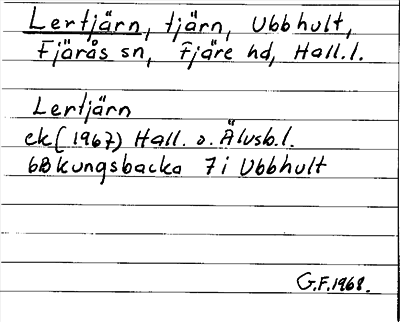 Lertjärn, tjärn, Ubbhult,
Fjärås sn, Fjäre hd, Hall.l.
Lertjärn
ek (1967) Hall. o. Älvsb.l.
6B Kungsbacka 7i Ubbhult
G.F. 1968.